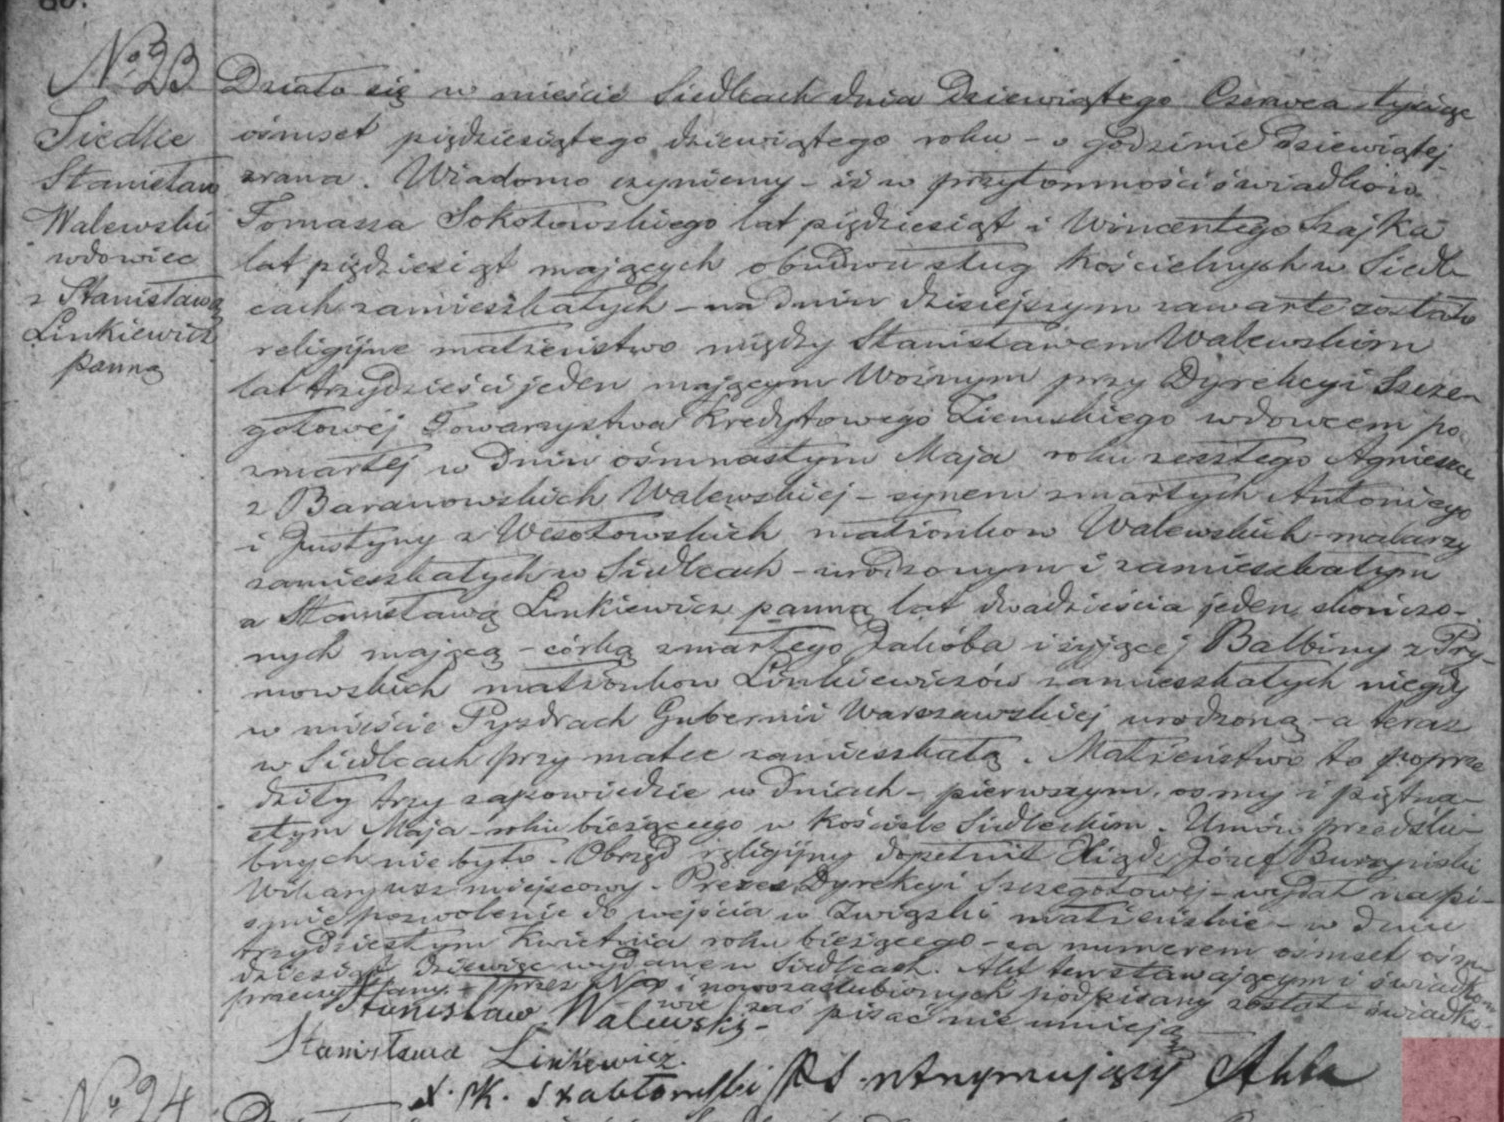 No 23
Siedlce
Stanisław
Walewski
wdowiec
z Stanisławą
Linkiewicz
panną
Działo się w mieście Siedlcach dnia Dziewiątego Czerwca tysiąc
ośmset pięździesiątego dziewiątego roku – o godzinie dziewiątej
zrana. Wiadomo czyniemy – iż w przytomności świadków
Tomasza Sokołowskiego lat pięździesiąt i Wincentego Szajka
lat pięździesiąt mających obudwu sług kościelnych w Siedl-
cach zamieszkałych – na dniu dzisiejszym zawarte zostało
religijne małżeństwo między Stanisławem Walewskim
lat trzydzieści jeden mającym Woźnym przy Dyrekcyi Szcze-
gołowej Towarzystwa Kredytowego Ziemskiego wdowcem po
zmarłej w dniu ośmnastym Maja roku zeszłego Agnieszce
z Baranowskich Walewskiej – synem zmarłych Antoniego
i Justyny z Wesołowskich małżonków Walewskich – malarzy
zamieszkałych w Siedlcach – urodzonym i zamieszkałym
a Stanisławą Linkiewicz panną lat dwadzieścia jeden skończo-
nych mającą – córką zmarłego Jakóba i żyjącej Balbiny z Pry-
mowskich małżonków Linkiewiczów zamieszkałych niegdy
w mieście Pyzdrach Gubernii Warszawskiej urodzoną – a teraz
w Siedlcach przy matce zamieszkałą. Małżeństwo to poprze
dziły trzy zapowiedzie w dniach – pierwszym, osmym i piętna-
stym Maja – roku bieżącego w kościele Siedleckim. Umów przedślu-
bnych nie było. Obrzęd religijny dopełnił Xiądz Józef Burzyński
Wikaryusz miejscowy. Prezes Dyrekcyi Szczegołowej – wydał na pi-
śmie pozwolenie do wejścia w związki małżeńskie – w dniu
trzydziestym Kwietnia roku bieżącego – za numerem ośmset ośm
dziesiąt dziewięć wydane w Siedlcach. Akt ten stawającym i świadkom
przeczytany – przez Nas i nowozaślubionych podpisany został – świadko-
wie zaś pisać nie umieją
Stanisław Walewski
Stanisława Linkiewicz.
X. M. Szabłowski P S utrzymujący Akta
No 24